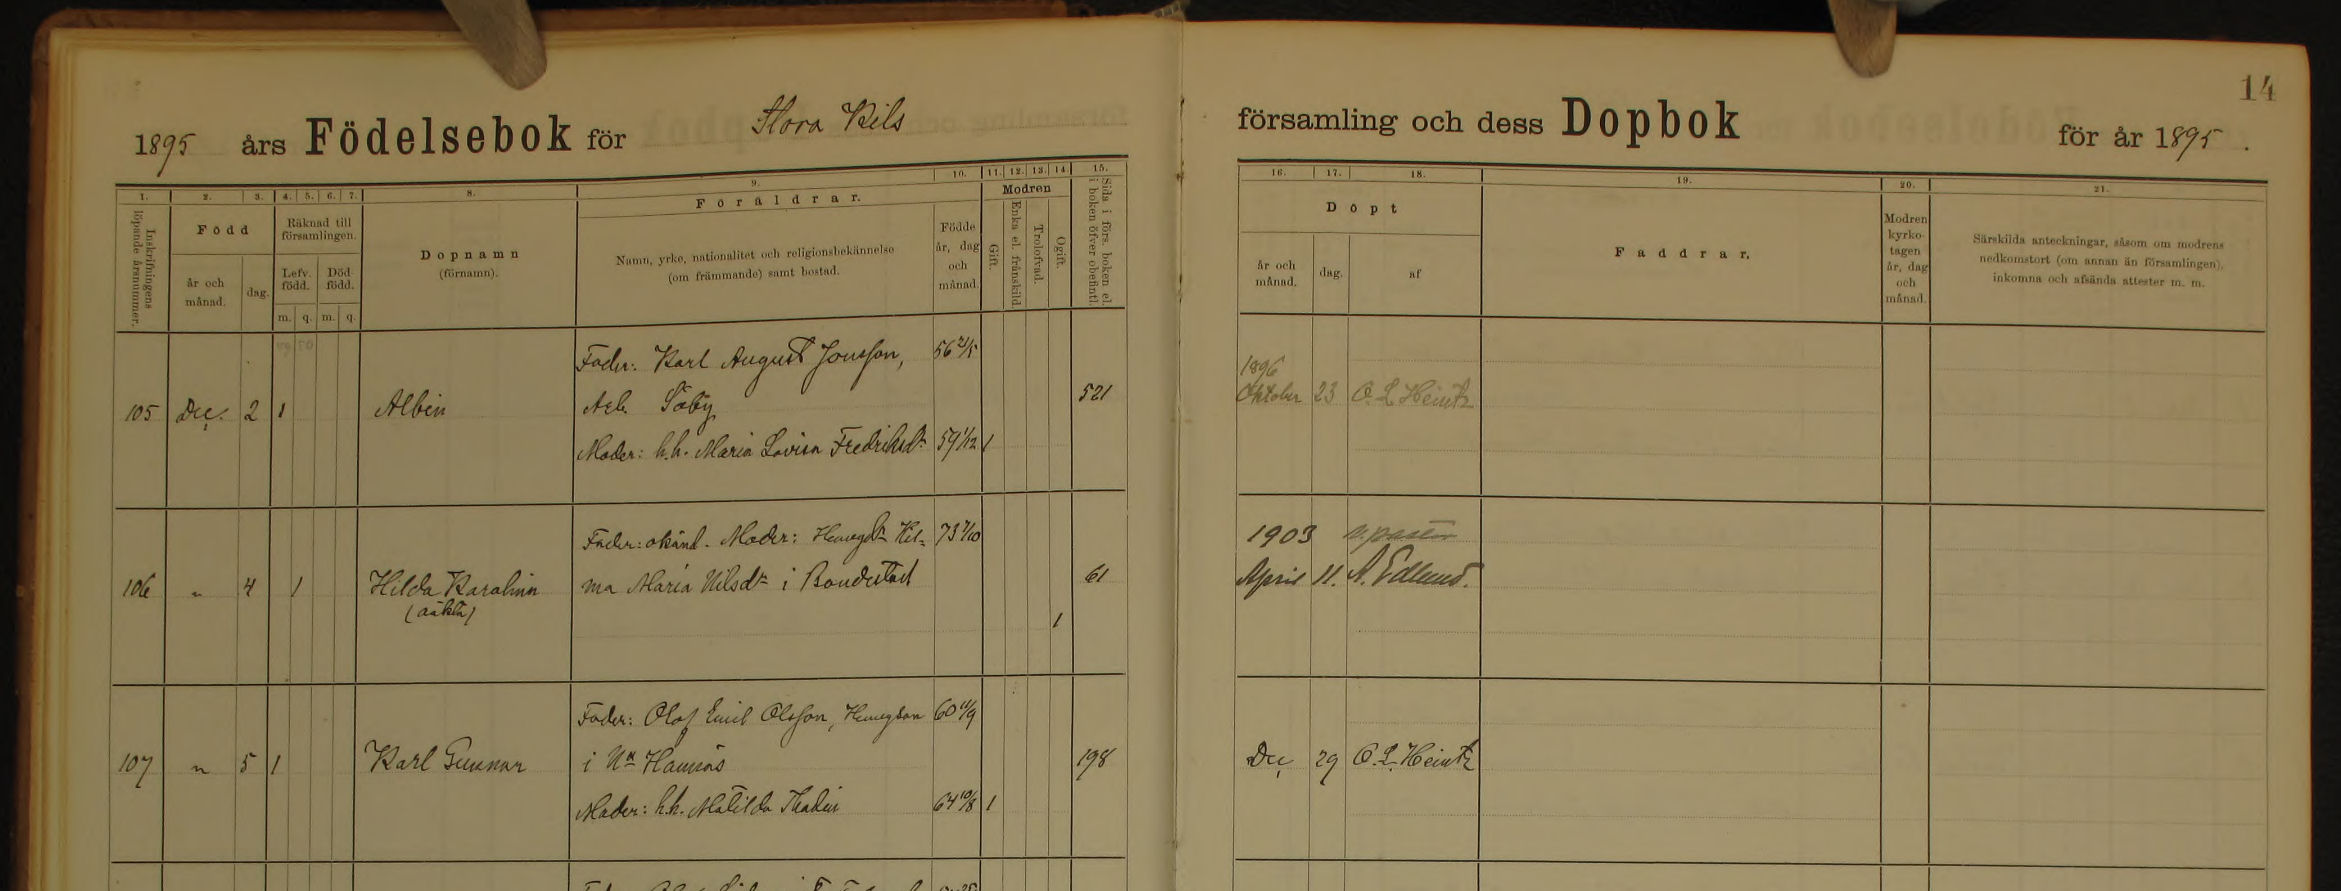 14
1895 års Födelsebok för Stora Kils
församling och dess Dopbok för år 1895.
1. 2. 3. 4. 5. 6. 7. 8. 9. 10. 11. 12. 13. 14. 15.
Inskrifningens löpande årsnummer.
Född
år och månad.
dag.
Räknad till församlingen.
Lefv. född.
Död- född.
m. q. m. q.
Dopnamn
(förnamn).
Föräldrar.
Namn, yrke, nationalitet och religionsbekännelse
(om främmande) samt bostad.
Födde år, dag och månad.
Modren
Gift.
Enka el. frånskild
Trolofvad.
Ogift.
Sida i förs. boken el. i boken öfver obefintl.
16. 17. 18. 19. 20. 21.
Döpt
år och månad.
dag.
af
Faddrar.
Modren kyrko- tagen år, dag och månad.
Särskilda anteckningar, såsom om modrens
nedkomstort (om annan än församlingen),
inkomna och afsända attester m. m.
Fader: Karl August Jonsson, 56 21/5
105 Dec. 2 1 Albin Arb. Såby 521
Moder: h.h. Maria Lovisa Fredriksdr 59 1/12 1
1896
Oktober 23 O. L. Heintz
Fader: okänd. Moder: Hemegdr Hil- 73 7/10
106 " 4 1 Hilda Karolina ma Maria Nilsdr i Bondestad 61
(oäkta) 1
1903 v. pastor
April 11. A. Edlund.
Fader: Olof Emil Olsson, Hemegson 60 11/9
107 " 5 1 Karl Gunnar i Na Hannäs 198
Moder: h.h. Matilda Thadin 64 10/8 1
Dec 29 O. L. Heintz